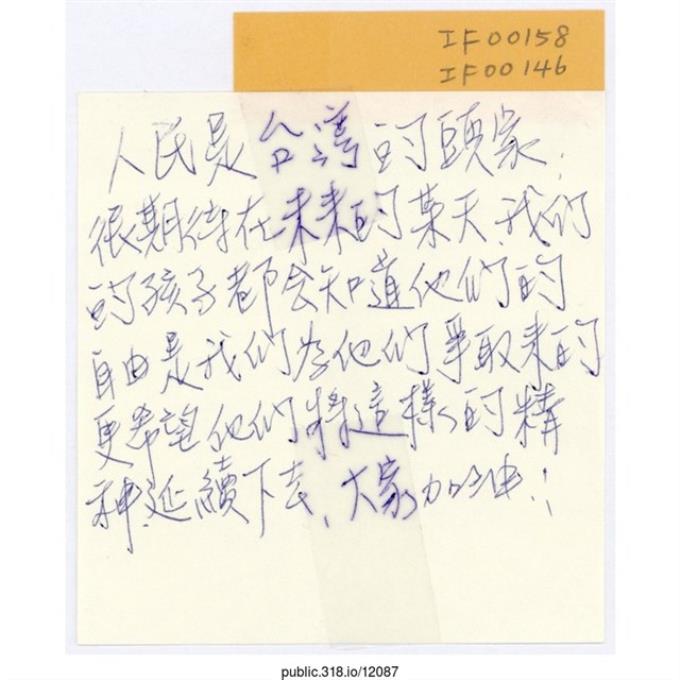 IF00158
IF00146
人民是台灣的頭家,
很期待在未來的某天,我們
的孩子都会知道他們的
自由是我們为他們爭取来的
更希望他們將這樣的精
神延續下去,大家加油!!
public.318.io/12087